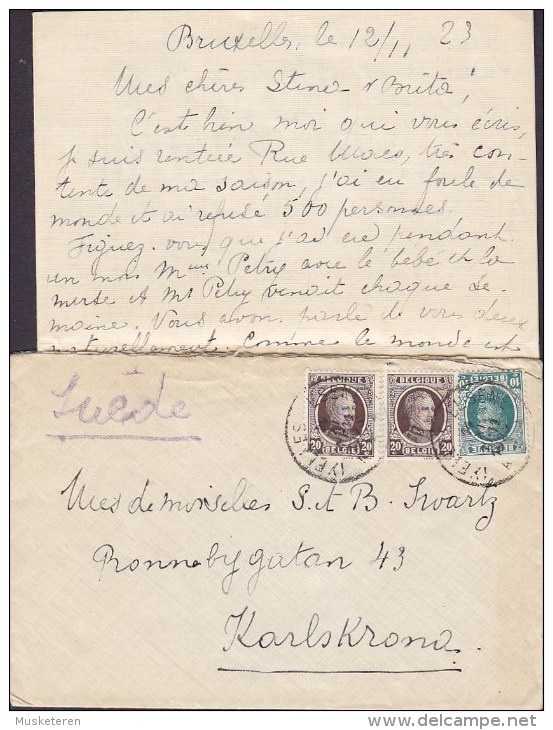 Bruxelles, le 12/11 23
Mes chères Stina & Brita,
C'est bien moi qui vous écris,
je suis rentrée Rue Maes, très con-
tente de ma saison, j'ai eu foule de
monde et ai refusé 500 personnes.
Figurez-vous que j'ai eu pendant
un mois Mme Petry avec le bébé et la
nurse et Mr Petry venait chaque se-
maine. Vous avons parlé de vous deux
naturellement. Comme le monde est
Suède
BELGIQUE
20 BELGIE 20
BELGIQUE
20 BELGIE 20
BELGIQUE
10 BELGIE 10
Mesdemoiselles S. et B. Swartz
Ronnebygatan 43
Karlskrona.
Musketeren
delcampe.net